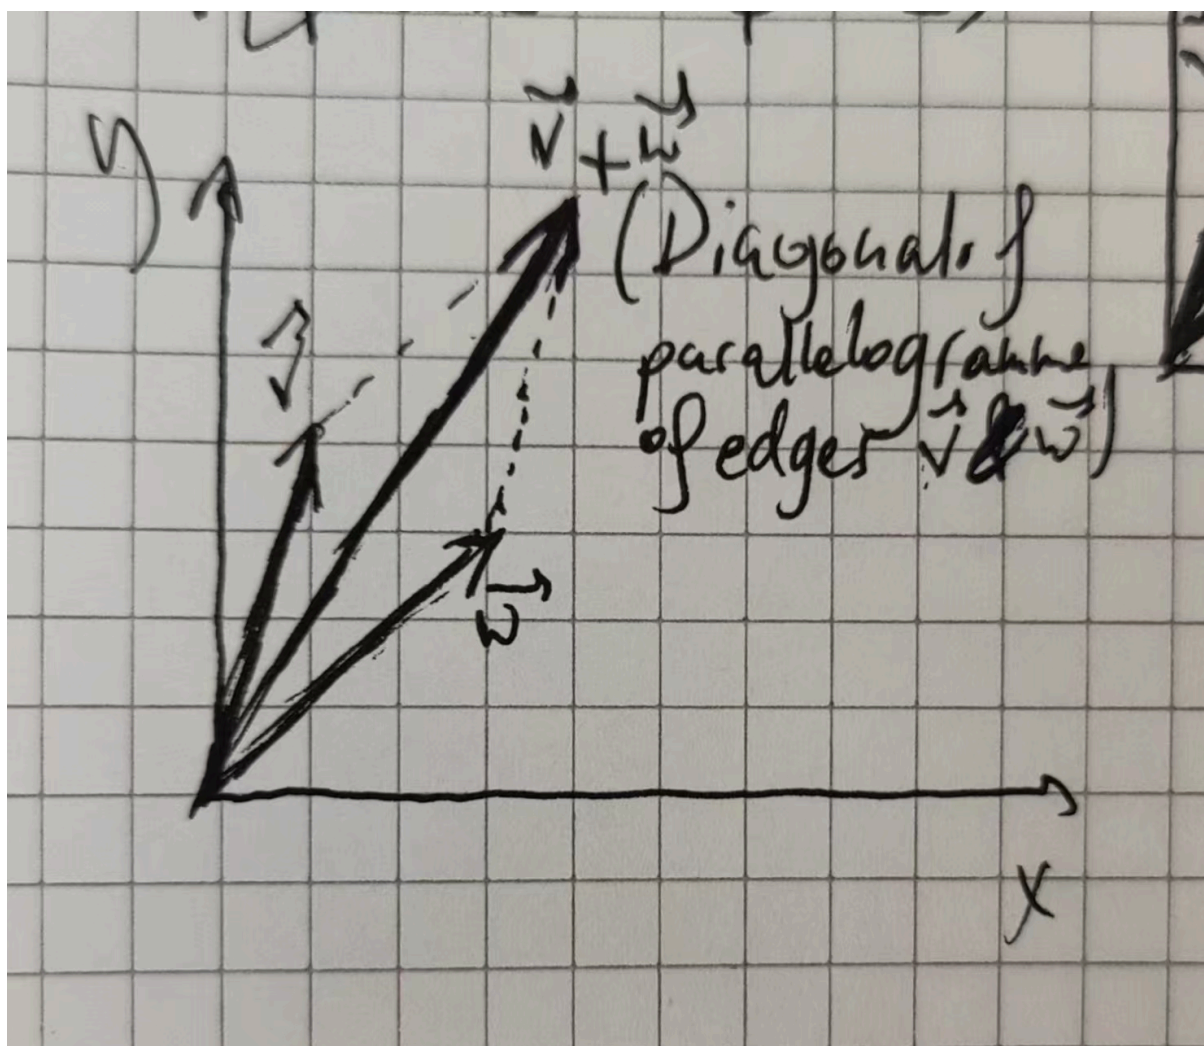 y
v⃗ + w⃗
(Diagonal of
parallelogramme
of edges v⃗ & w⃗)
v⃗
w⃗
x